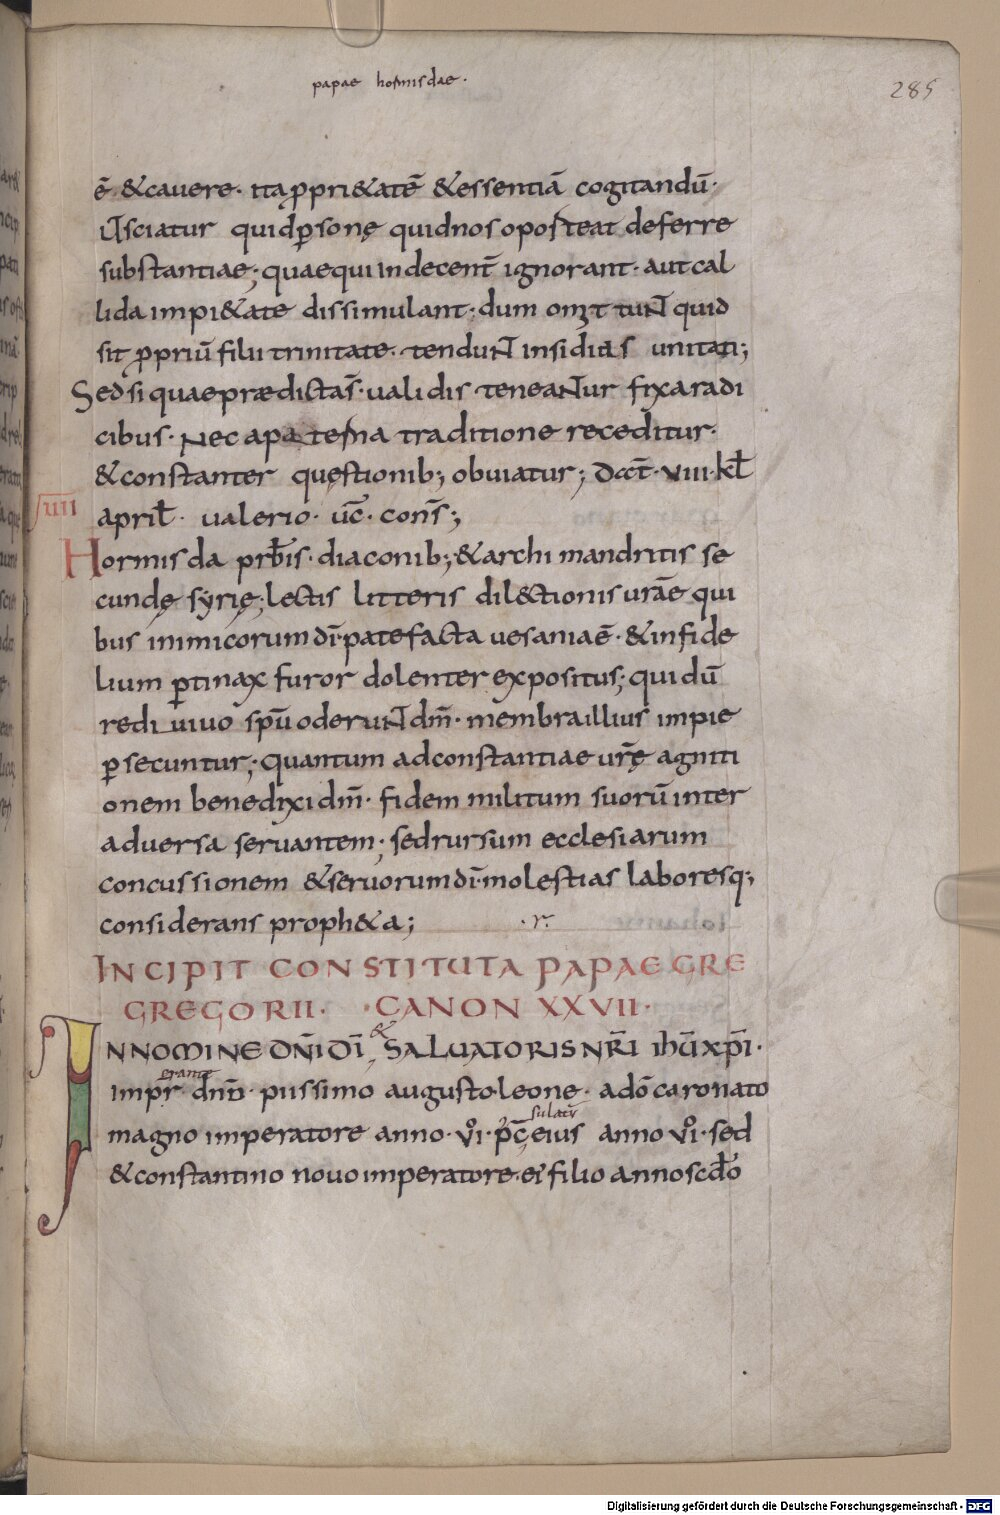 papae hormisdae.
285
ē &cauere. ita ꝓpri&atē &essentiā cogitandū.
ut sciatur quid ꝑsonę quid nos oporteat deferre
substantiae; quae qui indecent̄ ignorant. aut cal
lida impi&ate dissimulant. dum omittunt quid
sit ꝓpriū filii trinitate. tendunt insidias unitati;
Sed si quae prædictas̄. ualidis teneantur fixa radi
cibus. nec a paterna traditione receditur.
&constanter quęstionib; obuiatur; dcct̄. viii. kł
april̄. ualerio. uc̄. cons̄;
iiii
Hormisda prb̄is. diaconib; &archimandritis se
cundę syrię; lectis litteris dil&tionis urāe qui
bus inimicorum dī. patefacta uesania ē. &infide
lium ꝑtinax furor dolenter expositus; qui dū
rediuiuo spū oderunt dm̄. membra illius impie
ꝑsecuntur; quantum ad constantiae ur̄ę agniti
onem benedixi dm̄. fidem militum suorū inter
aduersa seruantem; sed rursum ecclesiarum
concussionem &seruorum dī. molestias laboresq;
considerans proph&a; .r.
INCIPIT CONSTITUTA PAPAE GRE
GREGORII. .CANON XXVII.
&
IN NOMINE DN̄I DĪ SALUATORIS NR̄I IHŪ XP̄I.
erante
impr̄. dnō. piissimo augusto leone. a dō coronato
sulatū
magno imperatore anno. vi. pc̄. eius anno vi. sed
&constantino nouo imperatore. ei' filio anno scdo
Digitalisierung gefördert durch die Deutsche Forschungsgemeinschaft - DFG